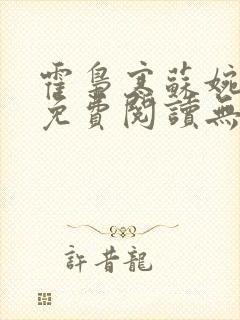 霍梟寒蘇婉
免費閱讀無
許昔龍